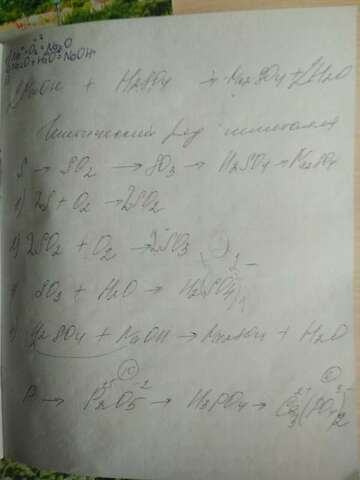 Na + O2 = Na2O
Na2O + H2O = NaOH
2NaOH + H2SO4 → Na2SO4 + 2H2O
Генетический ряд неметаллов
S → SO2 → SO3 → H2SO4 → Na2SO4
1) 2S + O2 → 2SO2
2) 2SO2 + O2 → 2SO3
SO3 + H2O → H2SO4
H2SO4 + NaOH → Na2SO4 + H2O
P → P2O5 → H3PO4 → Ca3(PO4)2